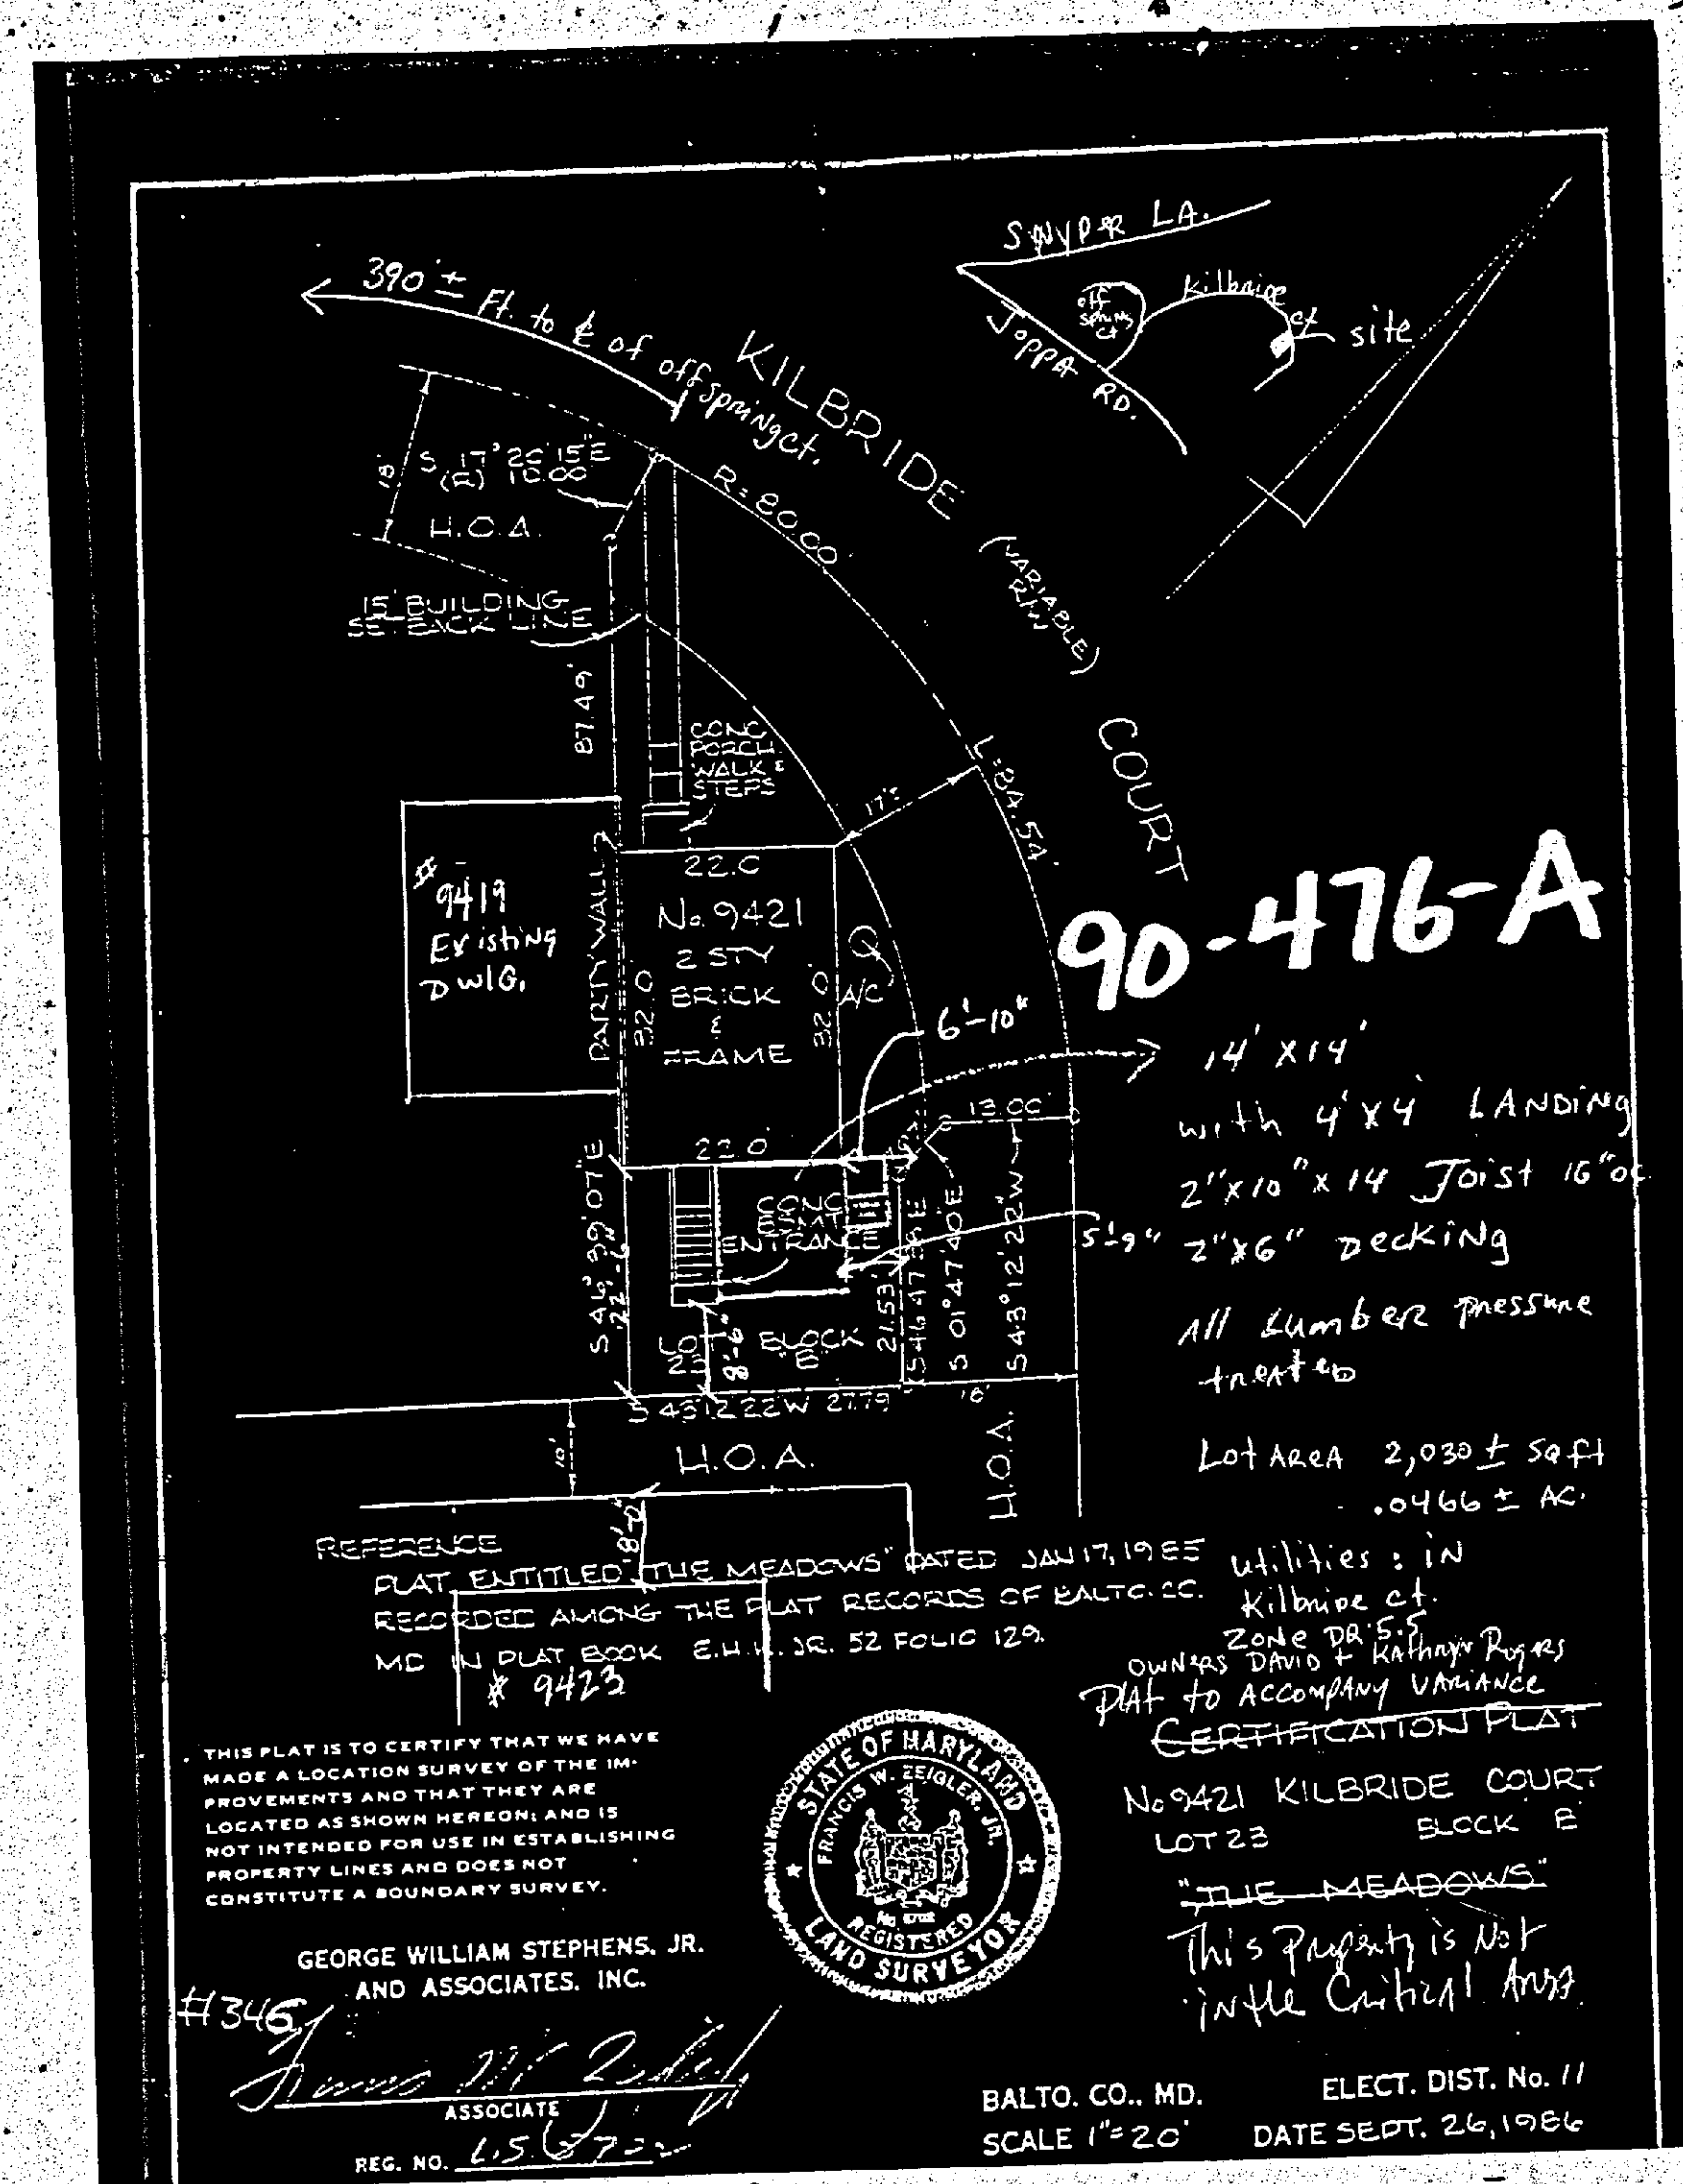 SNYDER LA.
390'± Ft. to ℄ of offspring ct.
Kilbride
ct
off
spring
ct
site
JOPPA RD.
KILBRIDE COURT
(VARIABLE)
R/W
(R) 10.00
18'
H.O.A.
R=80.00'
15' BUILDING
SETBACK LINE
87.49'
CONC
PORCH
WALK &
STEPS
17'±
L=84.54'
22.0'
PARTY WALL
# 9419
Existing
DWlG.
No. 9421
2 STY
BRICK
&
FRAME
32.0'
32.0'
A/C
90-476-A
6'-10"
14' X 14'
with 4' X 4' LANDING
2" X 10" X 14 Joist 16" oc
5'-9"
2" X 6" Decking
All Lumber pressure
treated
13.00'
22.0'
CONC
BSMT
ENTRANCE
S 46°39'07"E
22'-6"
21.53'
S 46 47 38 E
S 01°47'40"E
S 43°12'22"W
8'-6"
LOT
23
BLOCK
"E"
S 43 12 22 W 27.79
18'
10'
H.O.A.
H.O.A.
Lot AREA 2,030 ± SQ ft
.0466 ± AC.
8'-0"
REFERENCE
PLAT ENTITLED "THE MEADOWS" DATED JAN 17, 1985
RECORDED AMONG THE PLAT RECORDS OF BALTO. CO.
MD IN PLAT BOOK E.H.K. JR. 52 FOLIO 129.
# 9423
utilities : in
Kilbride ct.
ZONE DR 5.5
OWNERS DAVID + KAthryn Rogers
PlAt to ACCOMPANY VARIANCE
CERTIFICATION PLAT
No 9421 KILBRIDE COURT
LOT 23 BLOCK E
"THE MEADOWS"
This Property is Not
in the Critical Area.
THIS PLAT IS TO CERTIFY THAT WE HAVE
MADE A LOCATION SURVEY OF THE IM-
PROVEMENTS AND THAT THEY ARE
LOCATED AS SHOWN HEREON; AND IS
NOT INTENDED FOR USE IN ESTABLISHING
PROPERTY LINES AND DOES NOT
CONSTITUTE A BOUNDARY SURVEY.
STATE OF MARYLAND
FRANCIS W. ZEIGLER, JR.
REGISTERED
LAND SURVEYOR
GEORGE WILLIAM STEPHENS, JR.
AND ASSOCIATES, INC.
#346
ASSOCIATE
REG. NO. L.S.
BALTO. CO., MD. ELECT. DIST. No. 11
SCALE 1"=20' DATE SEPT. 26, 1986